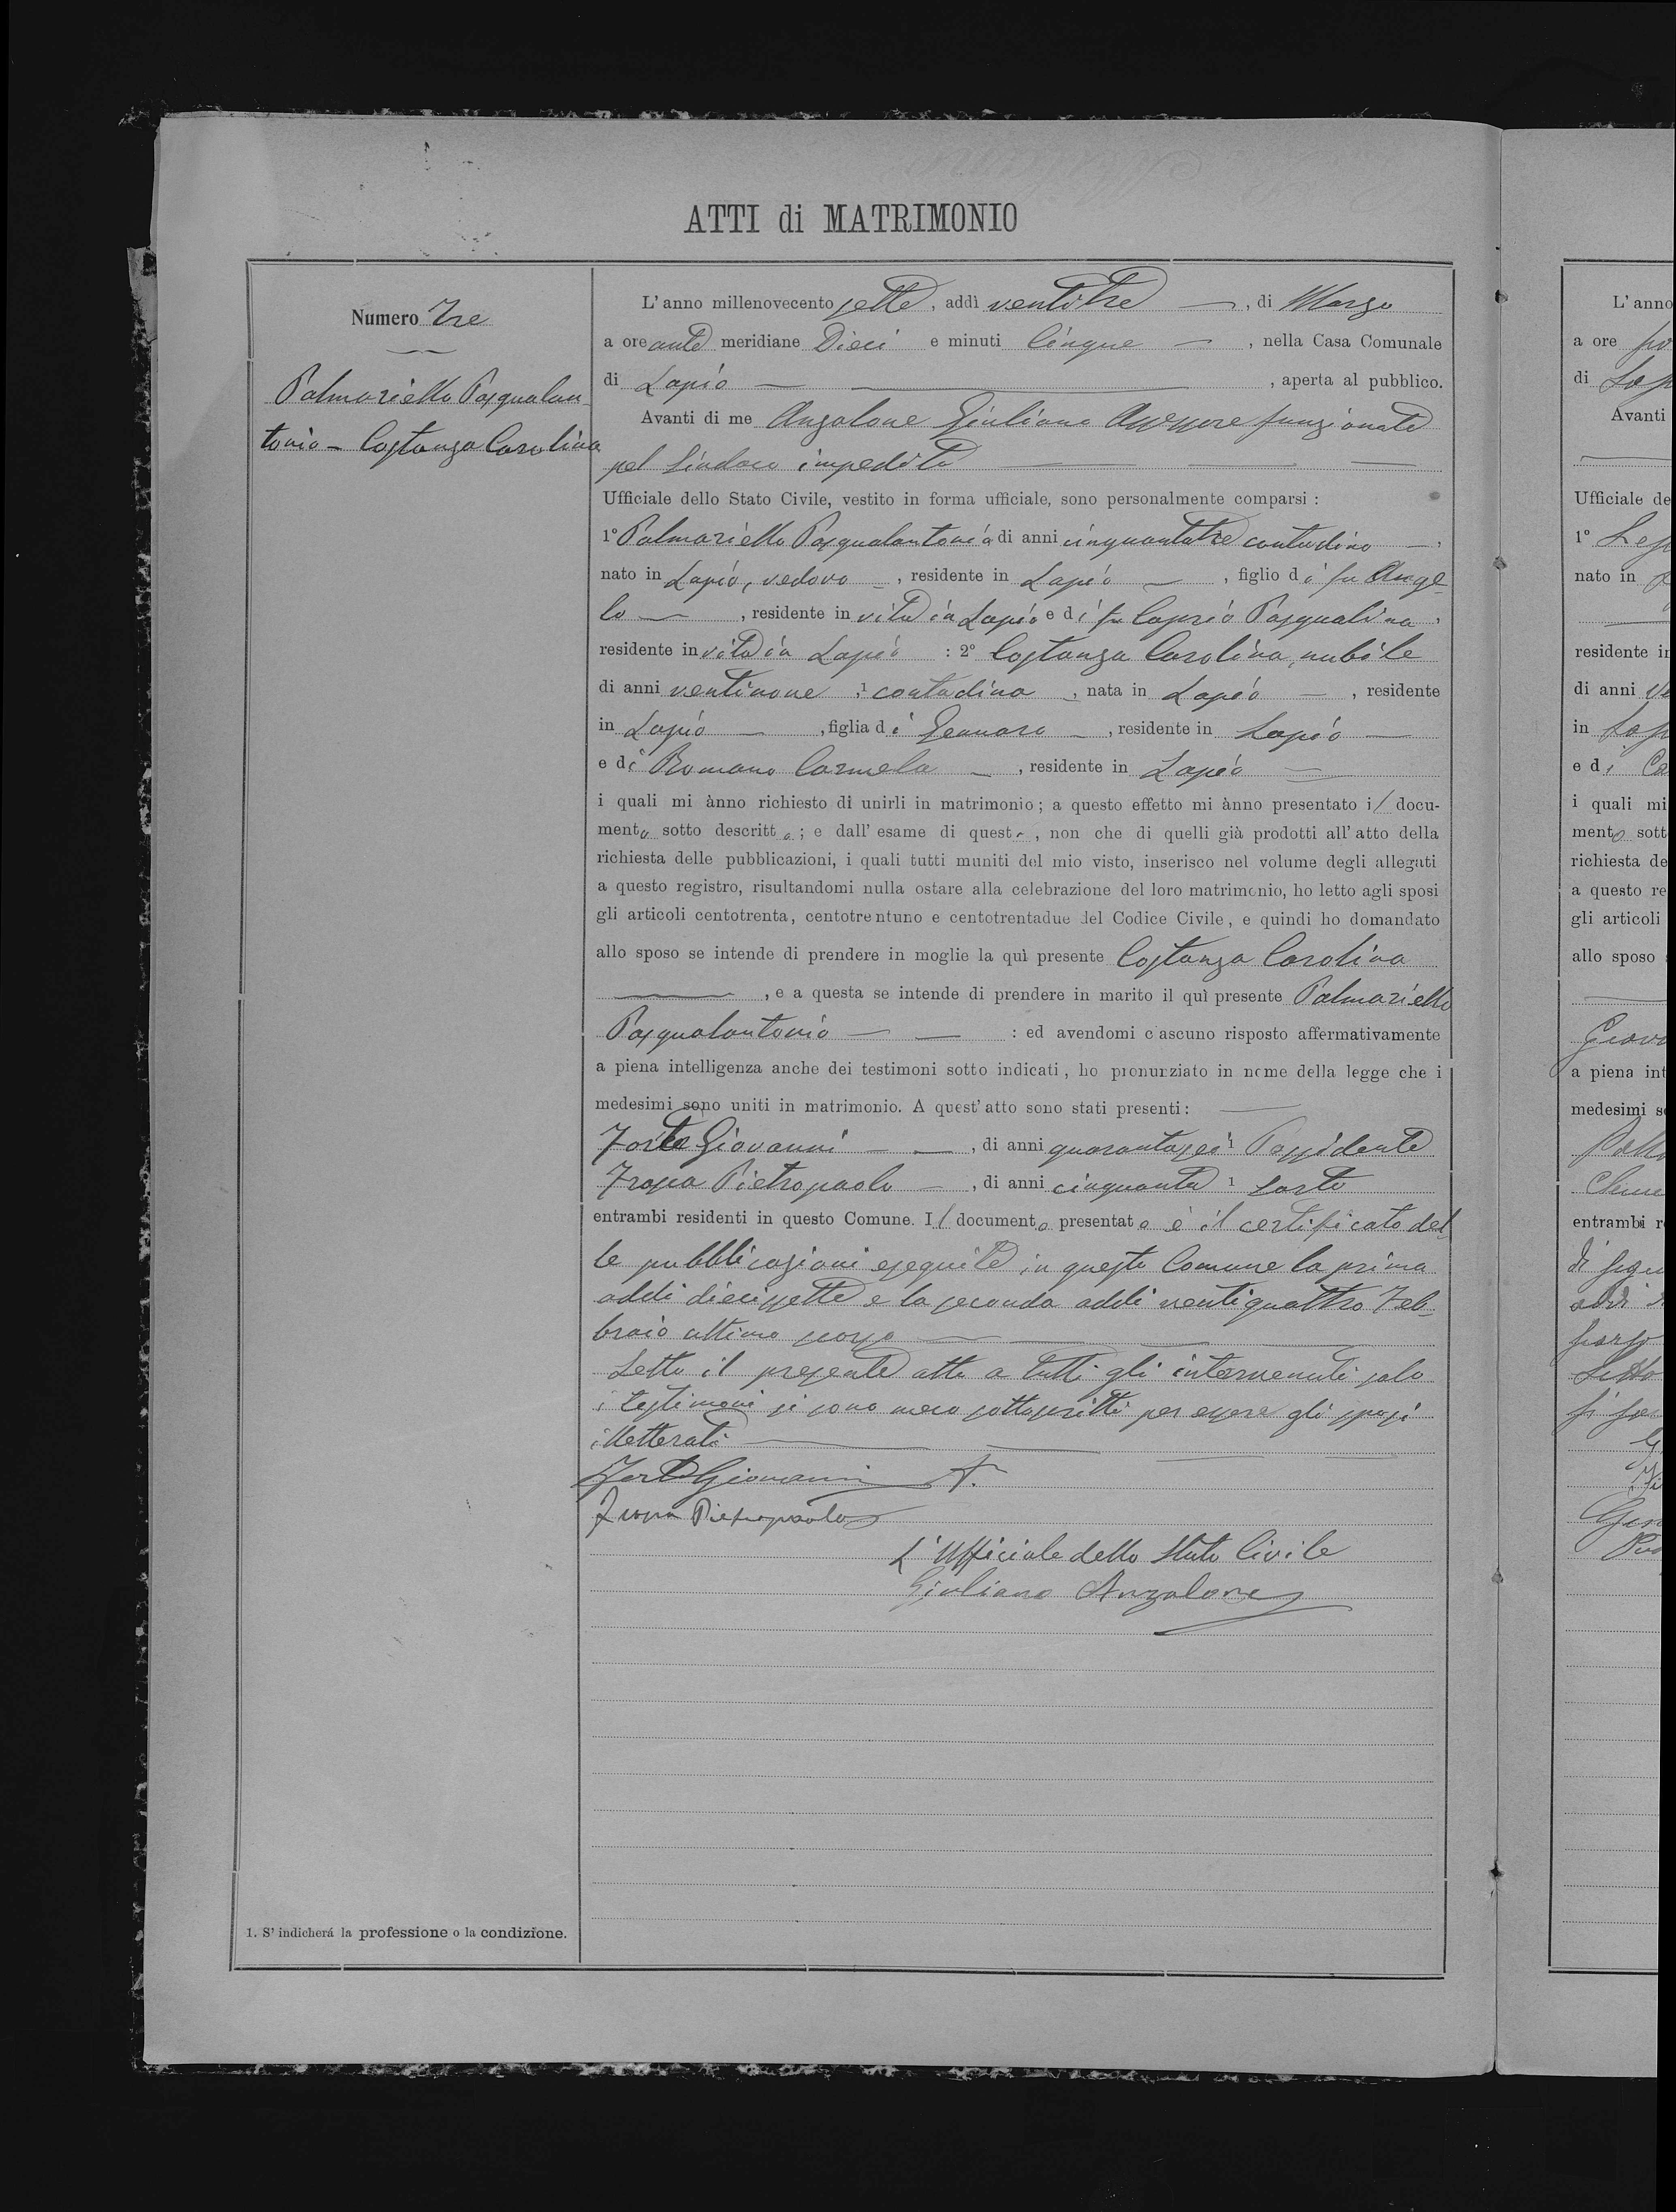 ATTI di MATRIMONIO
Numero Tre
Palmariello Pasqualan-
tonio - Costanza Carolina
L'anno millenovecento sette, addì ventitre —, di Marzo
a ore ante meridiane Dieci e minuti Cinque —, nella Casa Comunale
di Lapio — —, aperta al pubblico.
Avanti di me Anzalone Giuliano Assessore funzionate
pel Sindaco impedito — —
Ufficiale dello Stato Civile, vestito in forma ufficiale, sono personalmente comparsi :
1° Palmariello Pasqualantonio di anni cinquantatre contadino —,
nato in Lapio, vedovo —, residente in Lapio —, figlio di fu Ange-
lo —, residente in vita in Lapio e di fu Caprio Pasqualina,
residente in vita in Lapio : 2° Costanza Carolina, nubile
di anni ventinove ,1 contadina , nata in Lapio —, residente
in Lapio —, figlia di Gennaro —, residente in Lapio —
e di Romano Carmela —, residente in Lapio —
i quali mi ànno richiesto di unirli in matrimonio ; a questo effetto mi ànno presentato il docu-
mento sotto descritto ; e dall' esame di questo , non che di quelli già prodotti all' atto della
richiesta delle pubblicazioni, i quali tutti muniti del mio visto, inserisco nel volume degli allegati
a questo registro, risultandomi nulla ostare alla celebrazione del loro matrimonio, ho letto agli sposi
gli articoli centotrenta, centotrentuno e centotrentadue del Codice Civile, e quindi ho domandato
allo sposo se intende di prendere in moglie la quì presente Costanza Carolina
—, e a questa se intende di prendere in marito il quì presente Palmariello
Pasqualantonio — — : ed avendomi ciascuno risposto affermativamente
a piena intelligenza anche dei testimoni sotto indicati, ho pronunziato in nome della legge che i
medesimi sono uniti in matrimonio. A quest' atto sono stati presenti : —
Forte Giovanni — —, di anni quarantasei 1 Possidente
Trapa Pietropaolo —, di anni cinquanta 1 Sarto
entrambi residenti in questo Comune. Il documento presentato è il certificato del-
le pubblicazioni eseguite in questo Comune la prima
addi diecissette e la seconda addi ventiquattro Feb-
braio ultimo scorso —
Letto il presente atto a tutti gli intervenuti solo
i testimoni si sono meco sottoscritti per essere gli sposi
illetterati —
Forte Giovanni T.
Trapa Pietropaolo
L'Ufficiale dello Stato Civile
Giuliano Anzalone
1. S' indicherá la professione o la condizione.
L' anno
a ore
di Lap
Avanti
Ufficiale de
1°
nato in
residente in
di anni
in Lap
e di
i quali mi
mento sott
richiesta de
a questo re
gli articoli
allo sposo
Giova
a piena int
medesimi s
entrambi r
Letto